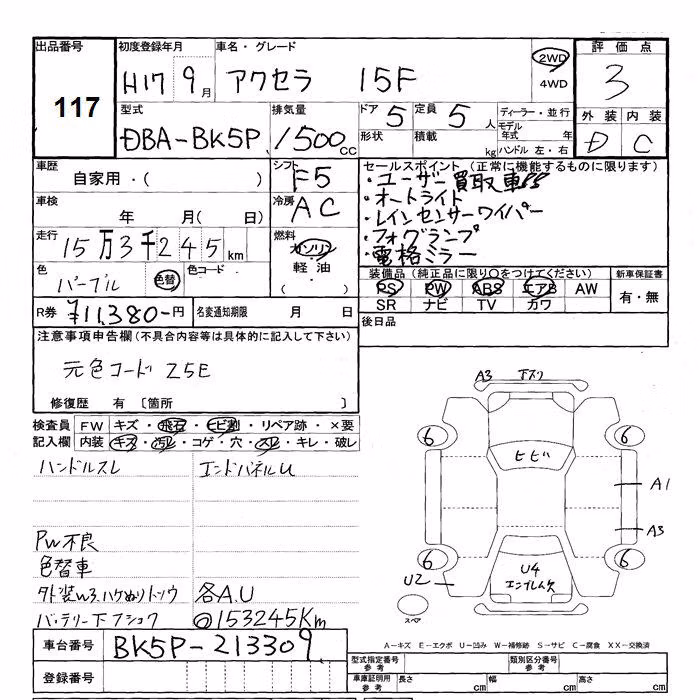 出品番号 初度登録年月 車名・グレード 評価点
117 H17 9月 アクセラ 15F 2WD 3
4WD
型式 排気量 ドア 5 定員 5人 ディーラー・並行 外装 内装
DBA-BK5P 1500cc 形状 積載 kg モデル年式 年 D C
ハンドル 左・右
車歴 シフト セールスポイント (正常に機能するものに限ります)
自家用・( ) F5 ・ユーザー買取車
車検 冷房 ・オートライト
年 月( 日) AC ・レインセンサーワイパー
走行 燃料 ・フォグランプ
15万3千245km ガソリン ・電格ミラー
軽油
色 色コード ( ) 装備品 (純正品に限り○をつけてください) 新車保証書
パープル 色替 PS PW ABS エアB AW 有・無
SR ナビ TV カワ
R券 ¥11,380-円 名変通知期限 月 日 後日品
注意事項申告欄(不具合内容等は具体的に記入して下さい)
元色コード 25E
修復歴 有 〔箇所 〕
検査員 FW キズ・飛石・ヒビ割・リペア跡・×要
記入欄 内装 キズ・汚レ・コゲ・穴・スレ・キレ・破レ
ハンドルスレ エンドパネルU
PW不良
色替車
外装W3.ハケぬりトソウ 各A.U
バッテリー下フショク ◎153245Km
A3 下スリ
6 6
ヒビ
A1
A3
6 6
U2 U4
エンブレム欠
スペア
A-キズ E-エクボ U-凹み W-補修跡 S-サビ C-腐食 XX-交換済
車台番号 BK5P-213309
登録番号
型式指定番号 参考 類別区分番号 参考
車庫証明用 参考 長さ cm 幅 cm 高さ cm